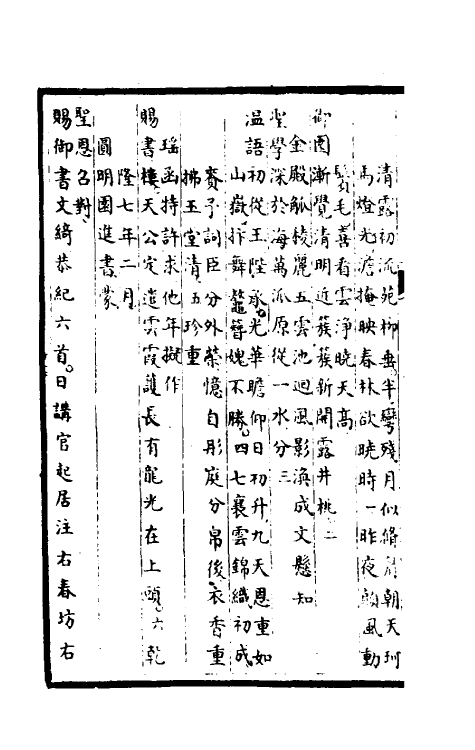 清露初流苑柳垂半彎殘月似脩眉朝天珂
馬燈光澹掩映春林欲曉時一昨夜顛風動
鬢毛喜看雲淨曉天高
御園漸覺清明近蔟蔟新開露井桃二
金殿觚棱麗五雲池迴風影渙成文懸知
聖學深於海萬派原從一水分三
温語初從玉陛承光華瞻仰日初升九天恩重如
山嶽抃舞鼇簪愧不勝四七襄雲錦織初成
賚予詞臣分外榮憶自彤庭分帛後衣香重
拂玉堂清五珍重
瑶函特許求他年擬作
賜書樓天公定遣雲霞護長有龍光在上頭六乾
隆七年二月
圓明園進書蒙
聖恩召對
賜御書文綺恭紀六首日講官起居注右春坊右